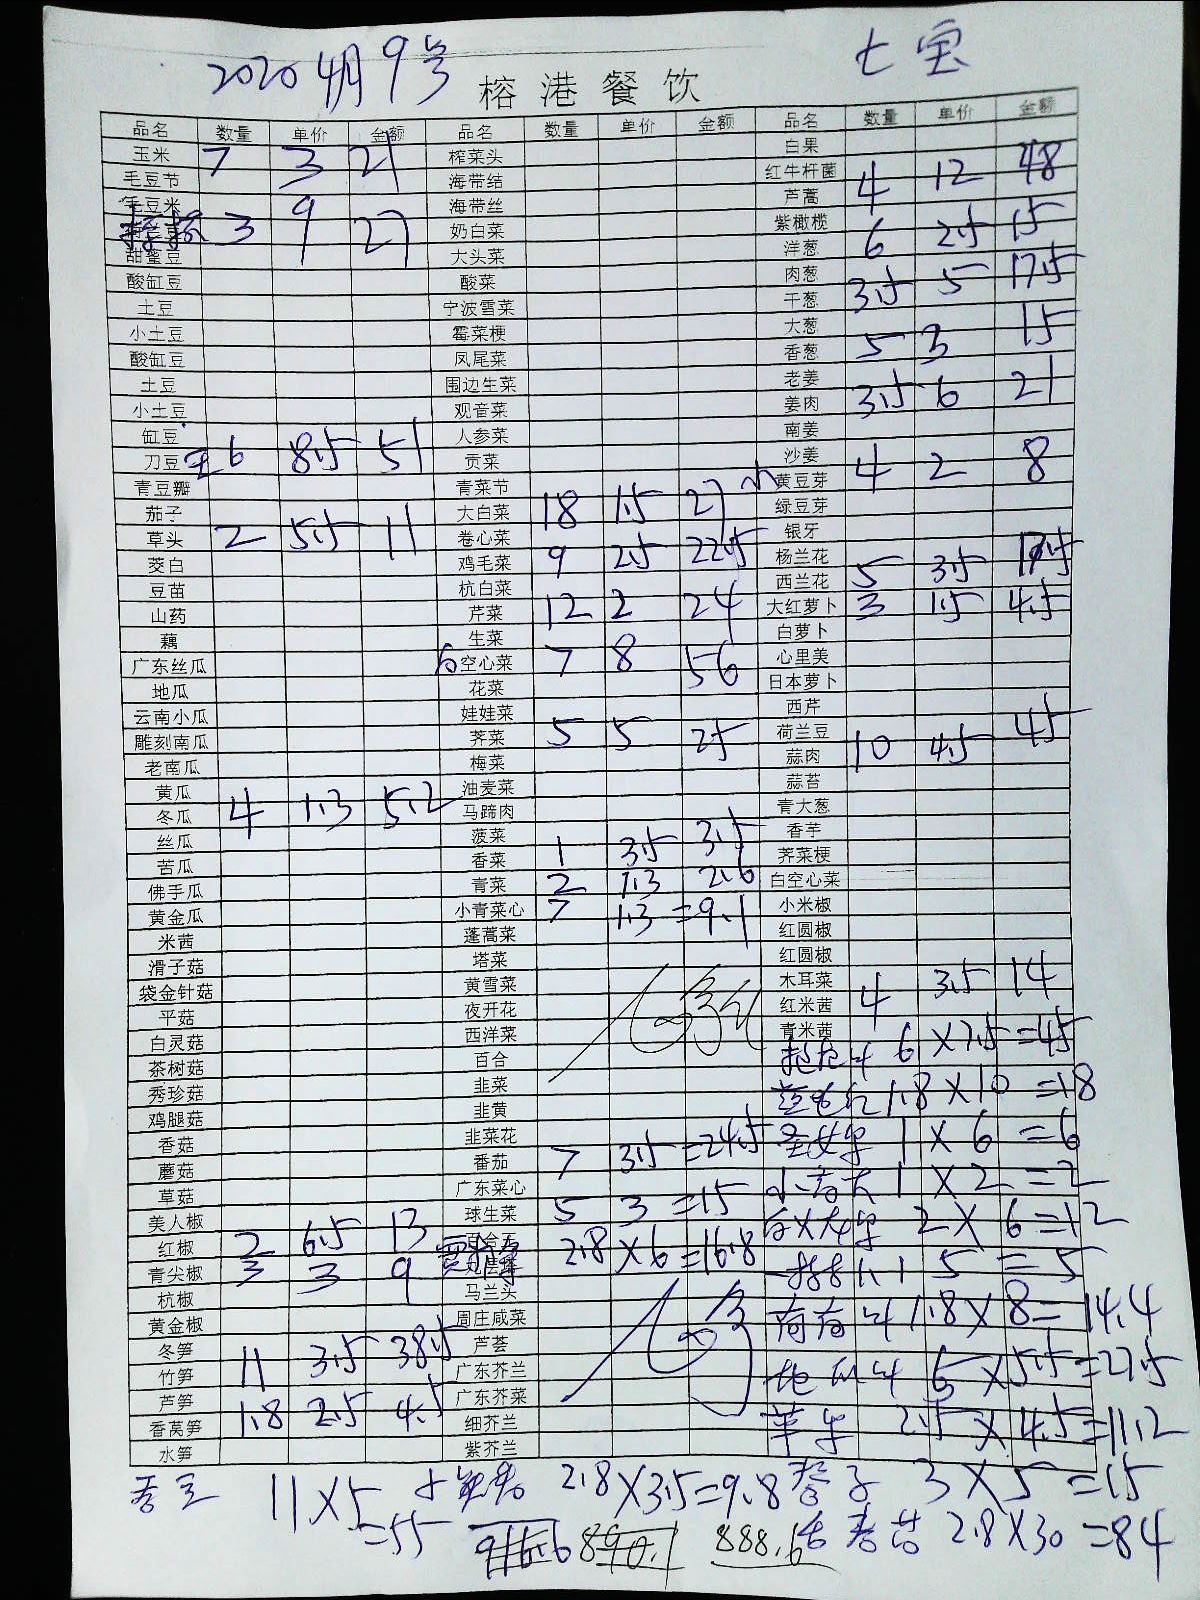 2020 4月9号 七宝
榕港餐饮
品名 数量 单价 金额 品名 数量 单价 金额 品名 数量 单价 金额
玉米 7 3 21 榨菜头 白果
毛豆节 海带结 红牛杆菌 4 12 48
毛豆米 海带丝 芦蒿
3 9 27 奶白菜 紫橄榄 6 2.5 15
甜蜜豆 大头菜 洋葱
酸缸豆 酸菜 肉葱 3.5 5 17.5
土豆 宁波雪菜 干葱
小土豆 霉菜梗 大葱 5 3 15
酸缸豆 凤尾菜 香葱
土豆 围边生菜 老姜 3.5 6 21
小土豆 观音菜 姜肉
缸豆 6 8.5 51 人参菜 南姜
刀豆 贡菜 沙姜 4 2 8
青豆瓣 青菜节 黄豆芽
茄子 大白菜 18 1.5 27 绿豆芽
草头 2 5.5 11 卷心菜 银牙
茭白 鸡毛菜 9 2.5 22.5 杨兰花 5 3.5 17.5
豆苗 杭白菜 西兰花
山药 芹菜 12 2 24 大红萝卜 3 1.5 4.5
藕 生菜 白萝卜
广东丝瓜 空心菜 7 8 56 心里美
地瓜 花菜 日本萝卜
云南小瓜 娃娃菜 西芹
雕刻南瓜 荠菜 5 5 25 荷兰豆 10 4.5 45
老南瓜 梅菜 蒜肉
黄瓜 油麦菜 蒜苔
冬瓜 4 1.3 5.2 马蹄肉 青大葱
丝瓜 菠菜 香芋
苦瓜 香菜 1 3.5 3.5 荠菜梗
佛手瓜 青菜 2 1.3 2.6 白空心菜
黄金瓜 小青菜心 7 1.3 =9.1 小米椒
米茜 蓬蒿菜 红圆椒
滑子菇 塔菜 红圆椒
袋金针菇 黄雪菜 木耳菜 4 3.5 14
平菇 夜开花 红米茜
白灵菇 西洋菜 青米茜
茶树菇 百合 6 ×7.5 =45
秀珍菇 韭菜 1.8 ×10 =18
鸡腿菇 韭黄
香菇 韭菜花 圣女果 1 × 6 =6
蘑菇 番茄 7 3.5 =24.5
草菇 广东菜心 1 ×2 =2
美人椒 球生菜 5 3 =15 2 × 6 =12
红椒 2 6.5 13 2.8 ×6 =16.8
青尖椒 3 3 9 1 5 = 5
杭椒 马兰头
黄金椒 周庄咸菜 1.8 × 8= 14.4
冬笋 11 3.5 38.5 芦荟
竹笋 广东芥兰 5 ×5.5 =27.5
芦笋 广东芥菜
香莴笋 1.8 2.5 4.5 细芥兰 2.5 × 4.5 =11.2
水笋 紫芥兰
11×5 =55 2.8 ×3.5 =9.8 3 ×5 =15
916.6 890.1 888.6 2.8×30 =84